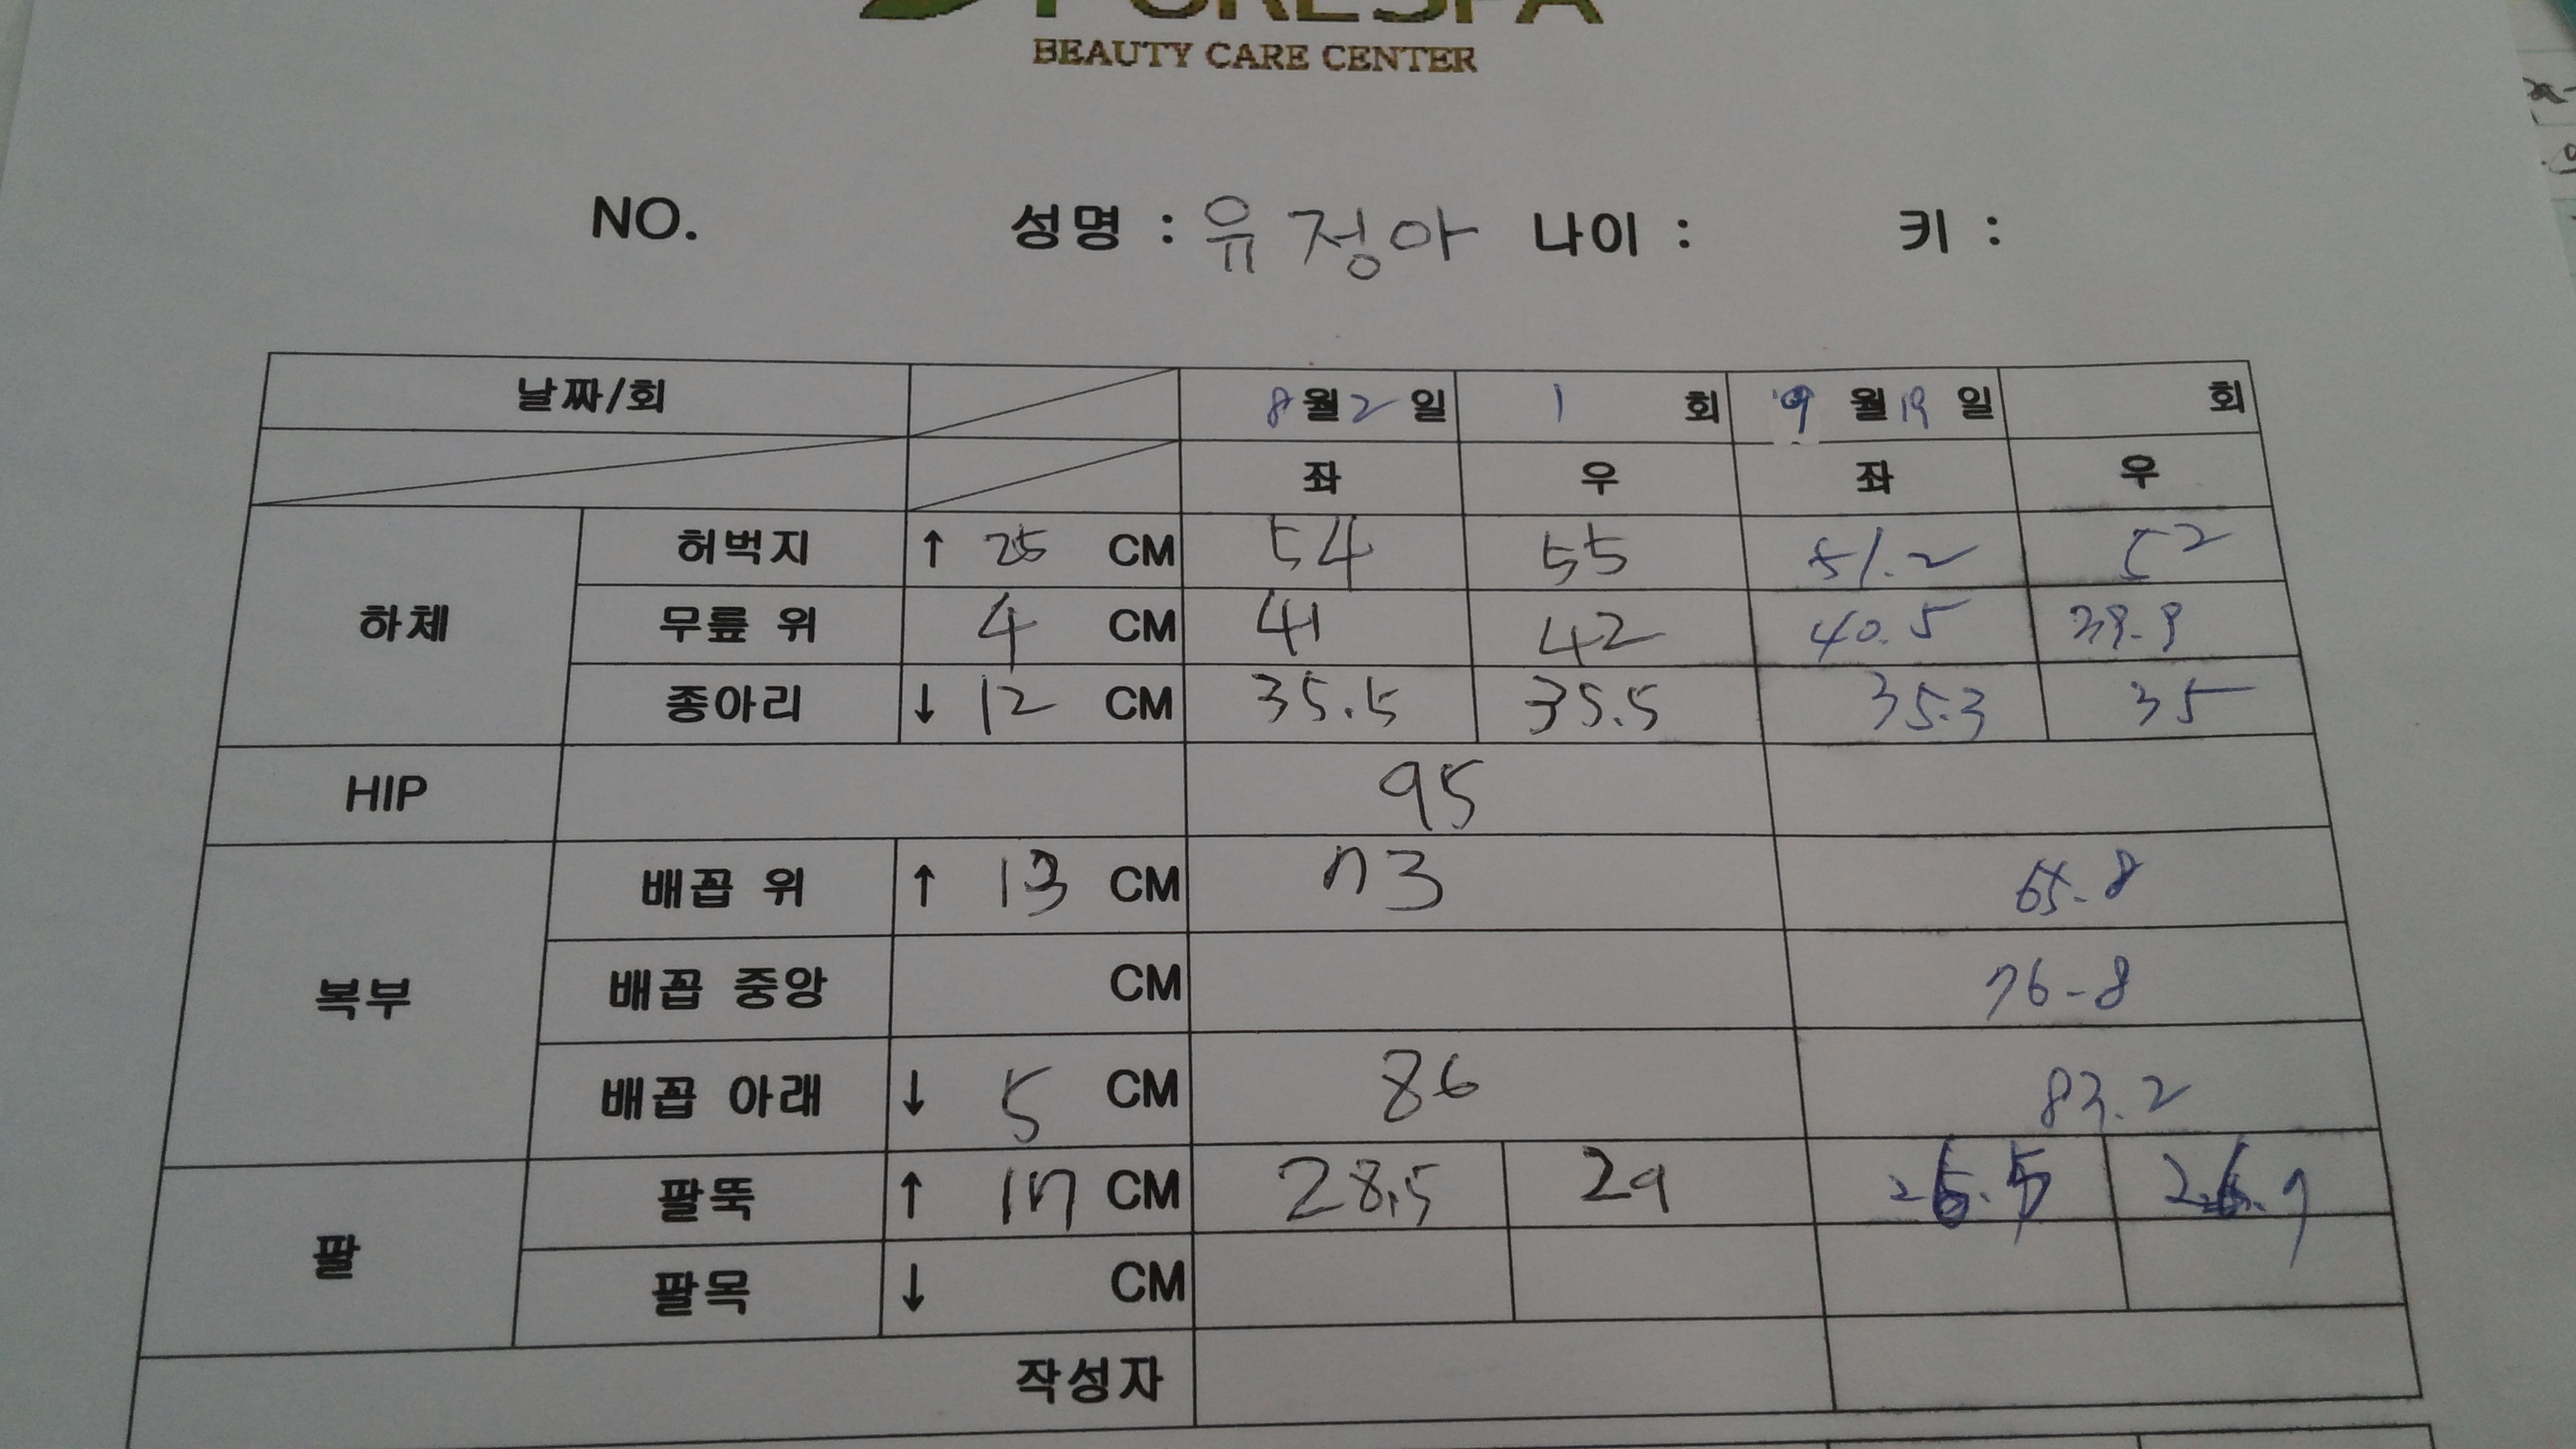 PURESPA
BEAUTY CARE CENTER
NO. 성명 : 유정아 나이 : 키 :
날짜/회 8월 2일 1 회 9월 19일 회
좌 우 좌 우
하체 허벅지 ↑ 25 CM 54 55 51.2 52
무릎 위 4 CM 41 42 40.5 39.9
종아리 ↓ 12 CM 35.5 35.5 35.3 35
HIP 95
복부 배꼽 위 ↑ 13 CM 73 65.8
배꼽 중앙 CM 76-8
배꼽 아래 ↓ 5 CM 86 83.2
팔 팔뚝 ↑ 17 CM 28.5 29 26.5 26.9
팔목 ↓ CM
작성자